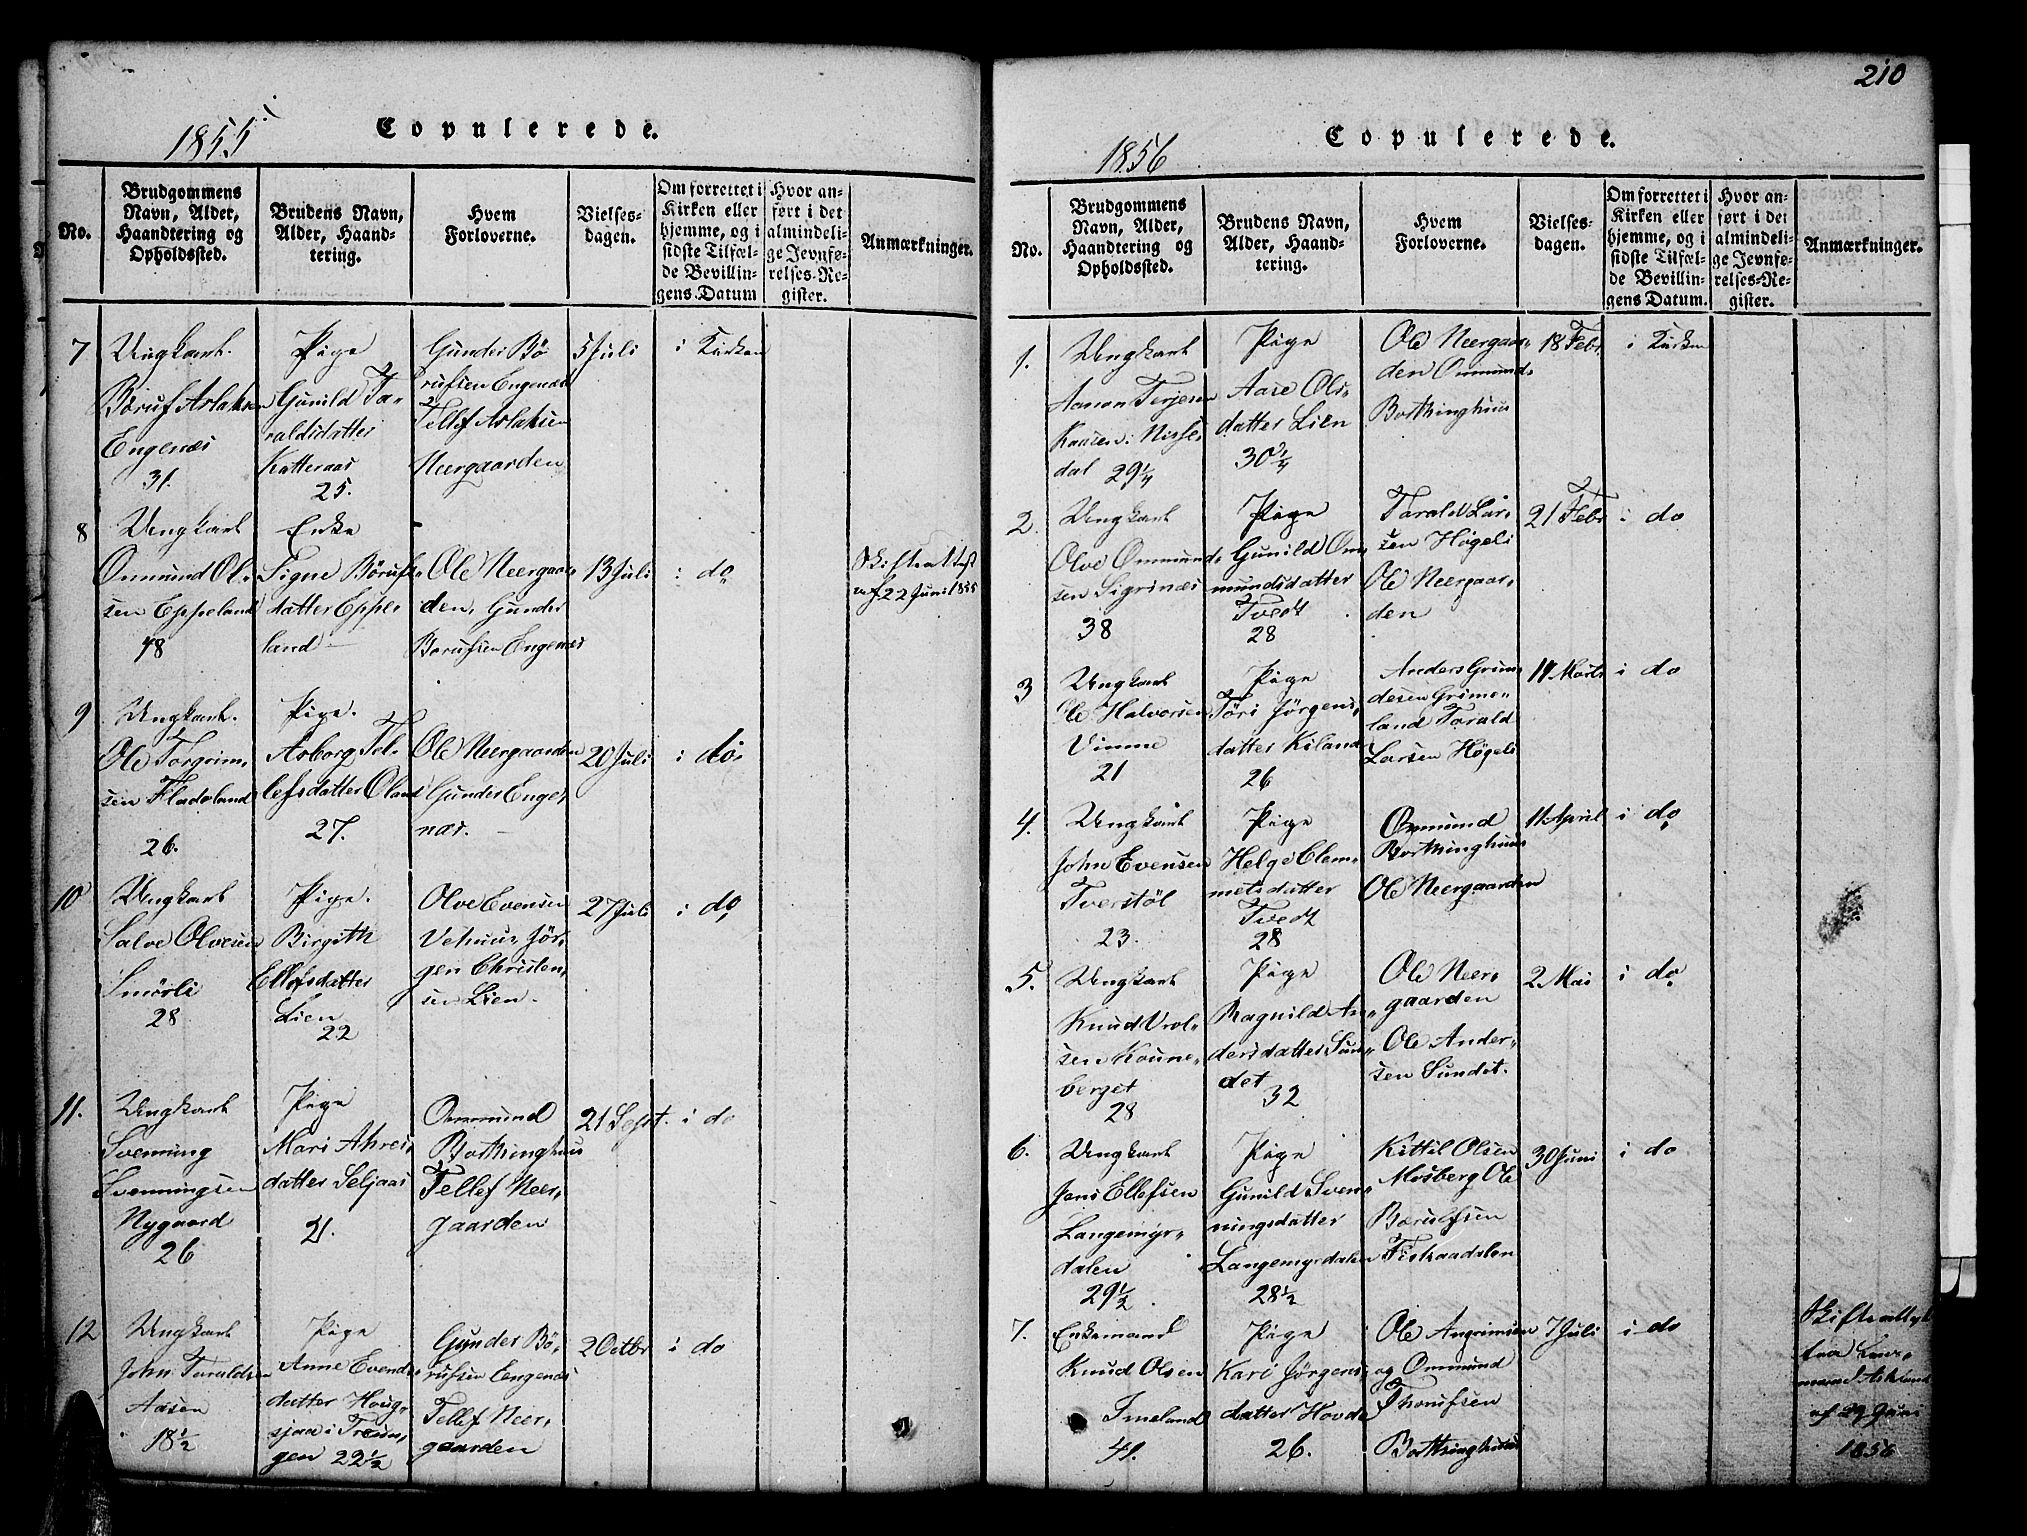 1855
Copulerede.
No.
Brudgommens
Navn, Alder,
Haandtering og
Opholdssted.
Brudens Navn,
Alder, Haand-
tering.
Hvem
Forloverne.
Vielses-
dagen.
Om forrettet i
Kirken eller
hjemme, og i
sidste Tilfæl-
de Bevillin-
gens Datum
Hvor an-
ført i det
almindeli-
ge Jevnfø-
relses-Re-
gister.
Anmærkninger.
7
Ungkarl.
Børuf Aslaksen
Engenæs
31.
Pige
Gunild Ta-
raldsdatter
Katteraas
25.
Gunder Bø
rufsen Engenæs
2
Tellef Aslaksen
Neergaarden
5 Juli
i Kirken
8
Ungkarl
Ommund Ol-
sen Eppeland
48
Enke
Signe Børufs-
datter Eppe-
land
Ole Neergaar-
den, Gunder
Børufsen Engenæs
13 Juli
i do
Skifteattest
af 22 Juni 1855
9
Ungkarl.
Ole Torgrim-
sen Fladeland
26.
Pige.
Asborg Tel-
lefsdatter Oland
27.
Ole Neergaarden
Gunder Enge-
næs.
20 Juli
i do
10
Ungkarl
Salve Olvesen
Smørli
28
Pige.
Birgith
Ellefsdatter
Lien
22
Olve Evensen
Vehuus Jør-
gen Christen-
sen Lien.
27 Juli
i do
11.
Ungkarl
Svenning
Svenningsen
Nygaard
26
Pige
Mari Ahres-
datter Seljaas
21.
Ommund
Borthinghuus
Tellef Neer-
gaarden
21 Sept.
i do
12
Ungkarl
John Taraldsen
Aasen
18 1/2
Pige
Anne Evends-
datter Houg-
sjaa i Treun-
gen 22 1/2
Gunder Bø-
rufsen Engenæs
Tellef Neer-
gaarden
2 Octbr
i do
210
1856
Copulerede.
No.
Brudgommens
Navn, Alder,
Haandtering og
Opholdssted.
Brudens Navn,
Alder, Haand-
tering.
Hvem
Forloverne.
Vielses-
dagen.
Om forrettet i
Kirken eller
hjemme, og i
sidste Tilfæl-
de Bevillin-
gens Datum.
Hvor an-
ført i det
almindeli-
ge Jevnfø-
relses-Re-
gister.
Anmærkninger.
1.
Ungkarl
Aanon Terjesen
Kaasen i Nisse-
dal 29 1/4
Pige
Aase Ols-
datter Lien
30 3/4
Ole Neergaar-
den Ommund
Borthinghuus
18 Febr.
i Kirken
2.
Ungkarl
Olve Ommund-
sen Sigrinæs
38
Pige
Gunild Om-
mundsdatter
Tvedt
28
Tarald Lar-
sen Høgeli
Ole Neergaar-
den
21 Febr
i do
3
Ungkarl
Ole Halvorsen
Vimme
21
Pige
Tøri Jørgens-
datter Kiland
26
Anders Grun-
desen Grime-
land Tarald
Larsen Høgeli
11 Marts
i do
4.
Ungkarl
John Evensen
Tverstøl
23.
Pige
Helge Clem-
metsdatter
Tvedt
28
Ommund
Borthinghuus
Ole Neergaarden
11 April
i do
5.
Ungkarl
Knud Vrol-
sen Koune-
berget
28
Pige
Ragnild An-
dersdatter Sun-
det
32
Ole Neer-
gaarden
Ole Ander-
sen Sundet.
2 Mai
i do
6.
Ungkarl
Jens Ellefsen
Langemyr-
dalen
29 1/2
Pige
Gunild Sven-
ningsdatter
Langemyrdalen
28 1/2
Kittil Olsen
Mosberg Ole
Børulfsen
Fiskaadalen
30 Juni
i do
7.
Enkemand
Knud Olsen
Imeland
41.
Pige
Kari Jørgens-
datter Hovde
26.
Ole Angrimsen
og Ommund
Thorufsen
Borthinghuus
7 Juli
i do
Skifteattest
fra
af 29 Juni
1856